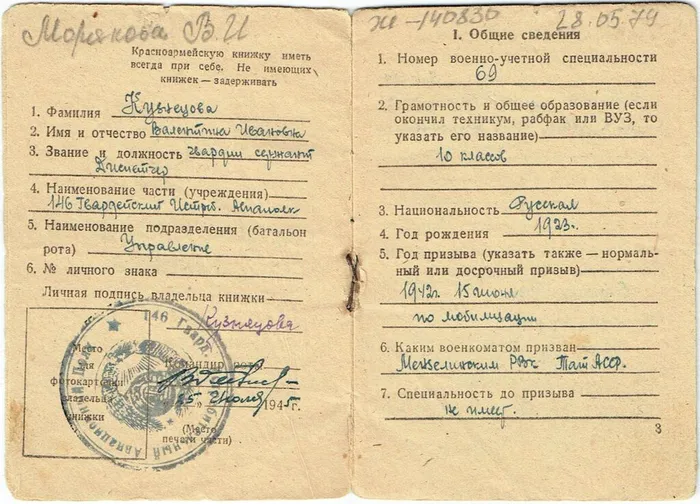 Морякова В.И
Красноармейскую книжку иметь
всегда при себе. Не имеющих
книжек — задерживать
1. Фамилия Кузнецова
2. Имя и отчество Валентина Ивановна
3. Звание и должность гвардии сержант
Диспетчер
4. Наименование части (учреждения)
146 Гвардейский Истреб. Авиаполк
5. Наименование подразделения (батальон
рота) Управление
6. № личного знака
Личная подпись владельца книжки
Кузнецова
146 Гвард.
Авиационный Полк
Место
для
фотокарточки
владельца
книжки
Командир
25 „ Июля 1945 г.
(Место
печати части)
Ж-140830 28.05.79
I. Общие сведения
1. Номер военно-учетной специальности
69
2. Грамотность и общее образование (если
окончил техникум, рабфак или ВУЗ, то
указать его название)
10 классов
3. Национальность Русская
4. Год рождения 1923г.
5. Год призыва (указать также — нормаль-
ный или досрочный призыв)
1942г. 15 июня
по мобилизации
6. Каким военкоматом призван
Мензелинским РВК Тат АССР.
7. Специальность до призыва
не имеет.
3